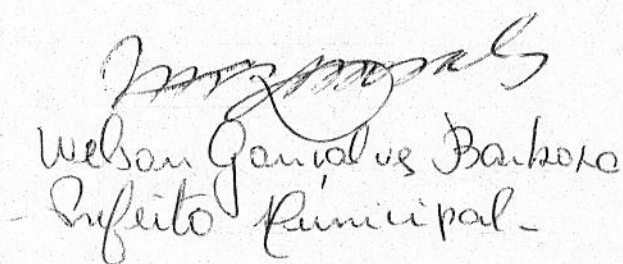 Welson Gonçalves Barbosa
- Prefeito Municipal -